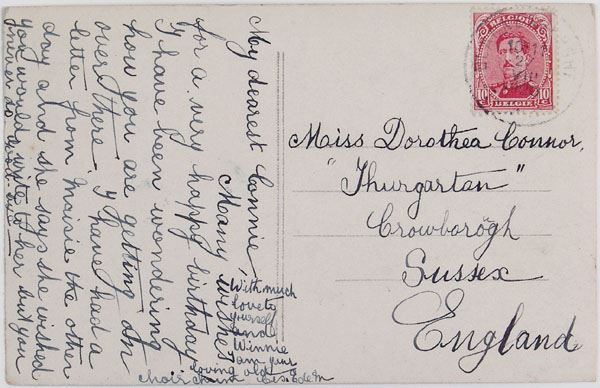 My dearest Connie,
Many wishes
for a very happy birthday
I have been wondering
how you are getting on
over there. I have had a
letter from Maisie the other
day and she says she wished
you would write to her but you
never do
With much
love to
yourself
and
Winnie
I am your
loving old
chum
BELGIQUE
10 10
BELGIE
Miss Dorothea Connor,
"Thurgartan"
Crowborögh
Sussex
England